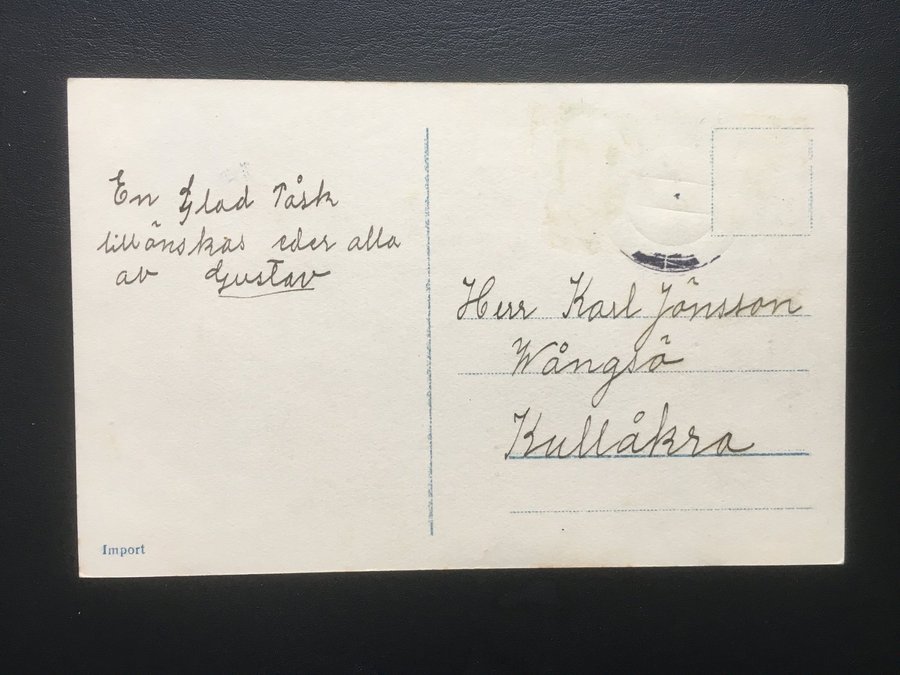 En Glad Påsk
tillönskas eder alla
av Gustav
Herr Karl Jönsson
Wångsö
Kullåkra
Import